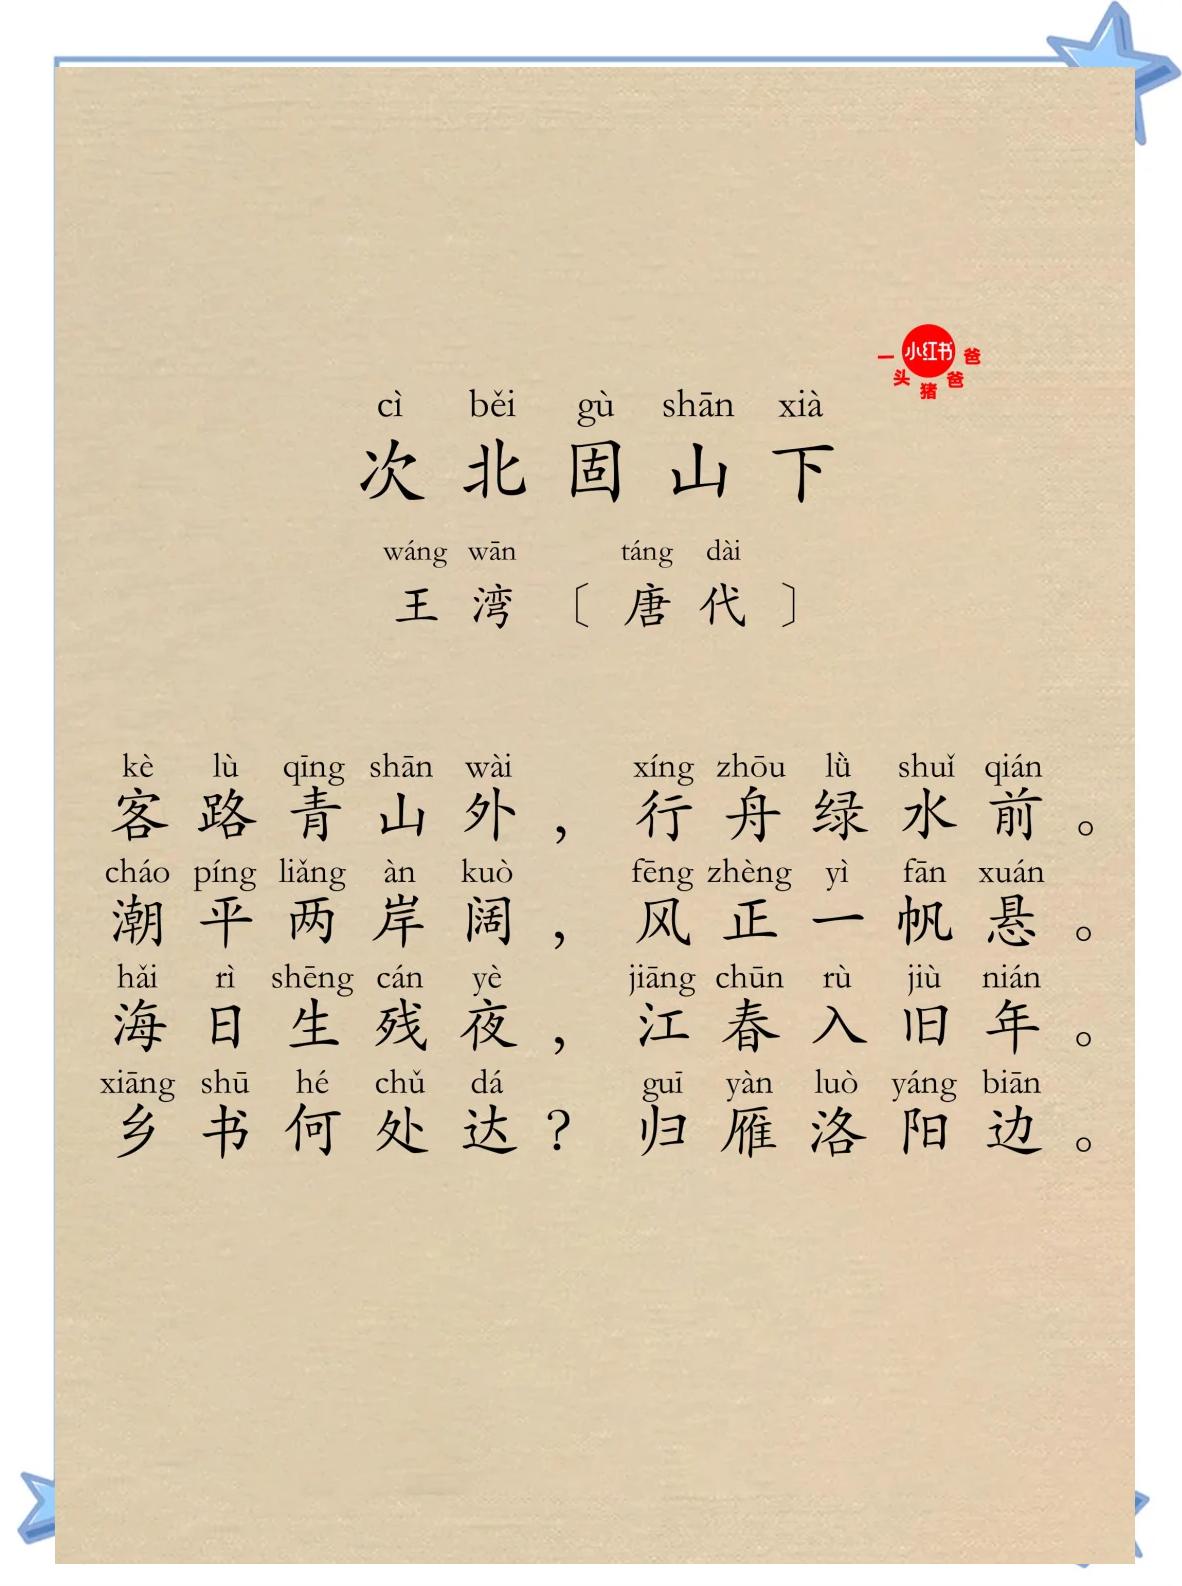 小红书
一头猪爸爸
cì běi gù shān xià
次北固山下
wáng wān táng dài
王湾〔唐代〕
kè lù qīng shān wài xíng zhōu lǜ shuǐ qián
客路青山外，行舟绿水前。
cháo píng liǎng àn kuò fēng zhèng yì fān xuán
潮平两岸阔，风正一帆悬。
hǎi rì shēng cán yè jiāng chūn rù jiù nián
海日生残夜，江春入旧年。
xiāng shū hé chǔ dá guī yàn luò yáng biān
乡书何处达？归雁洛阳边。